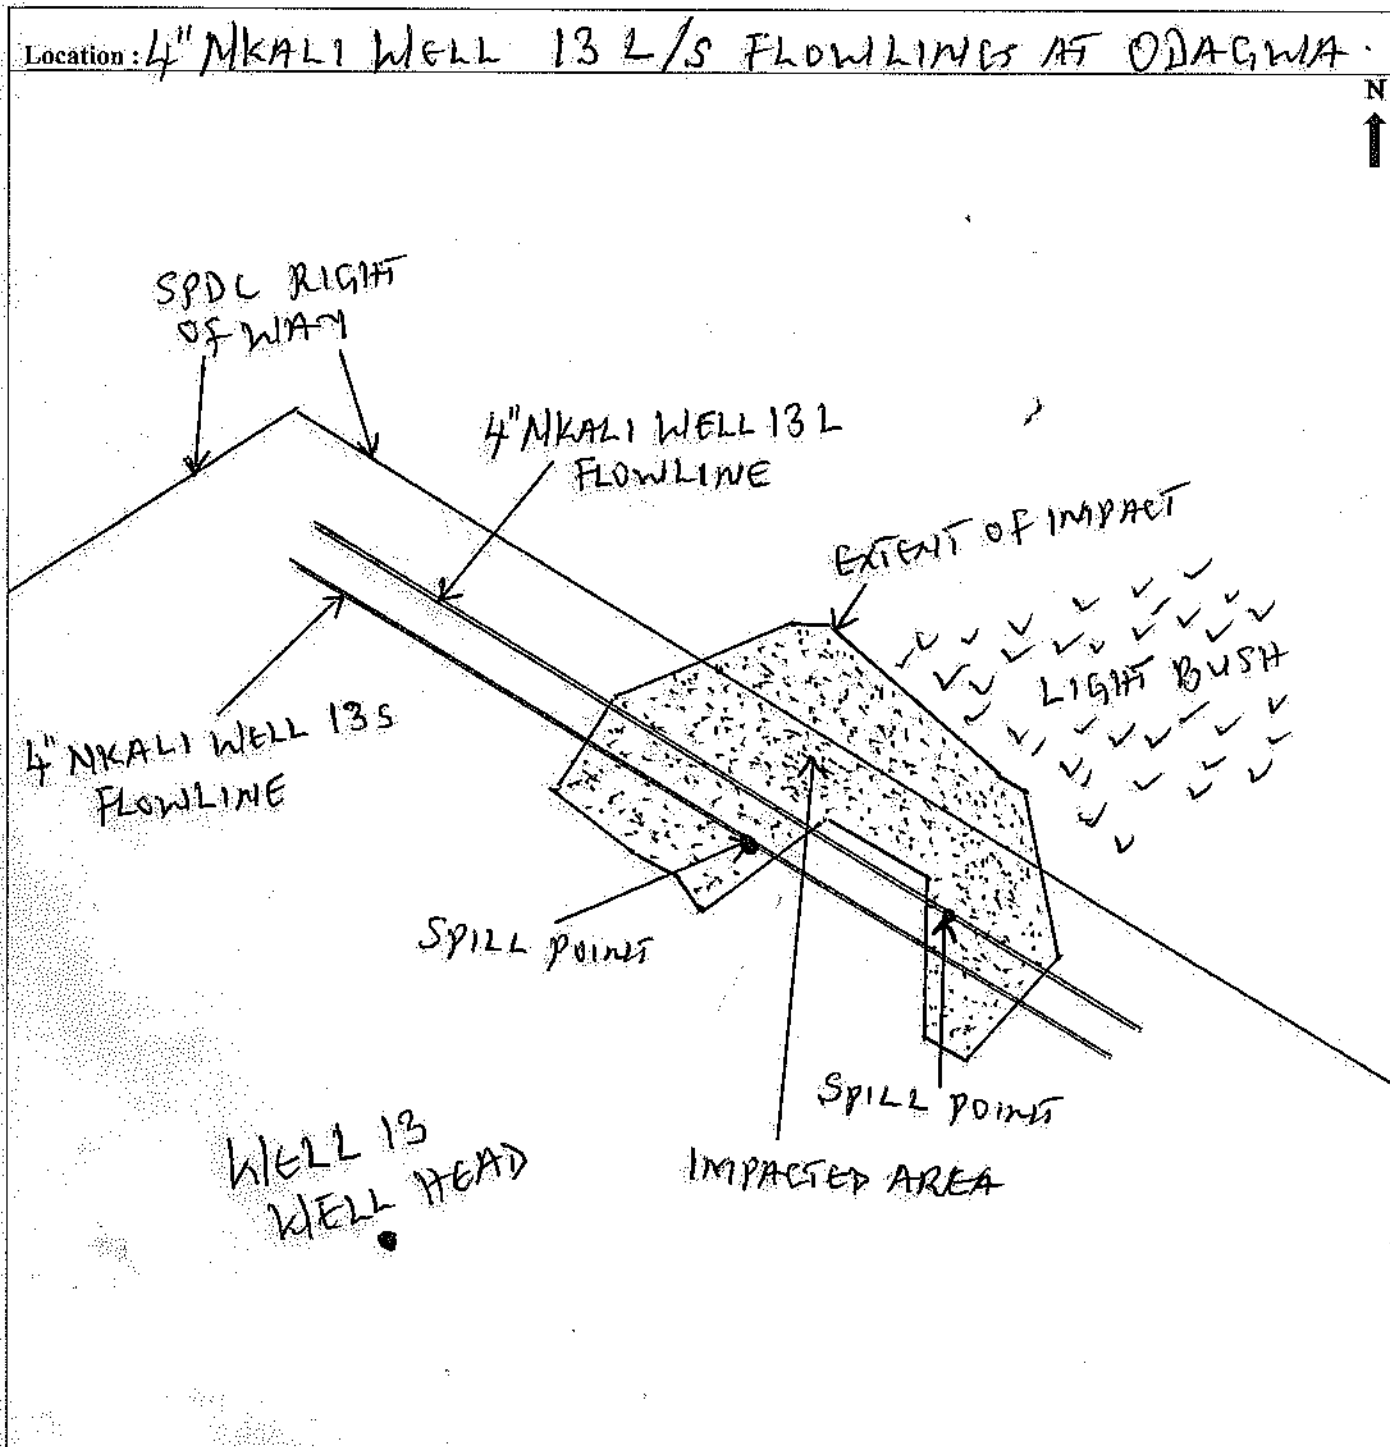 Location : 4" NKALI WELL 13 L/S FLOWLINES AT ODAGWA.
N
SPDC RIGHT
OF WAY
4" NKALI WELL 13 L
FLOWLINE
EXTENT OF IMPACT
LIGHT BUSH
4" NKALI WELL 13S
FLOWLINE
SPILL POINT
SPILL POINT
IMPACTED AREA
WELL 13
WELL HEAD